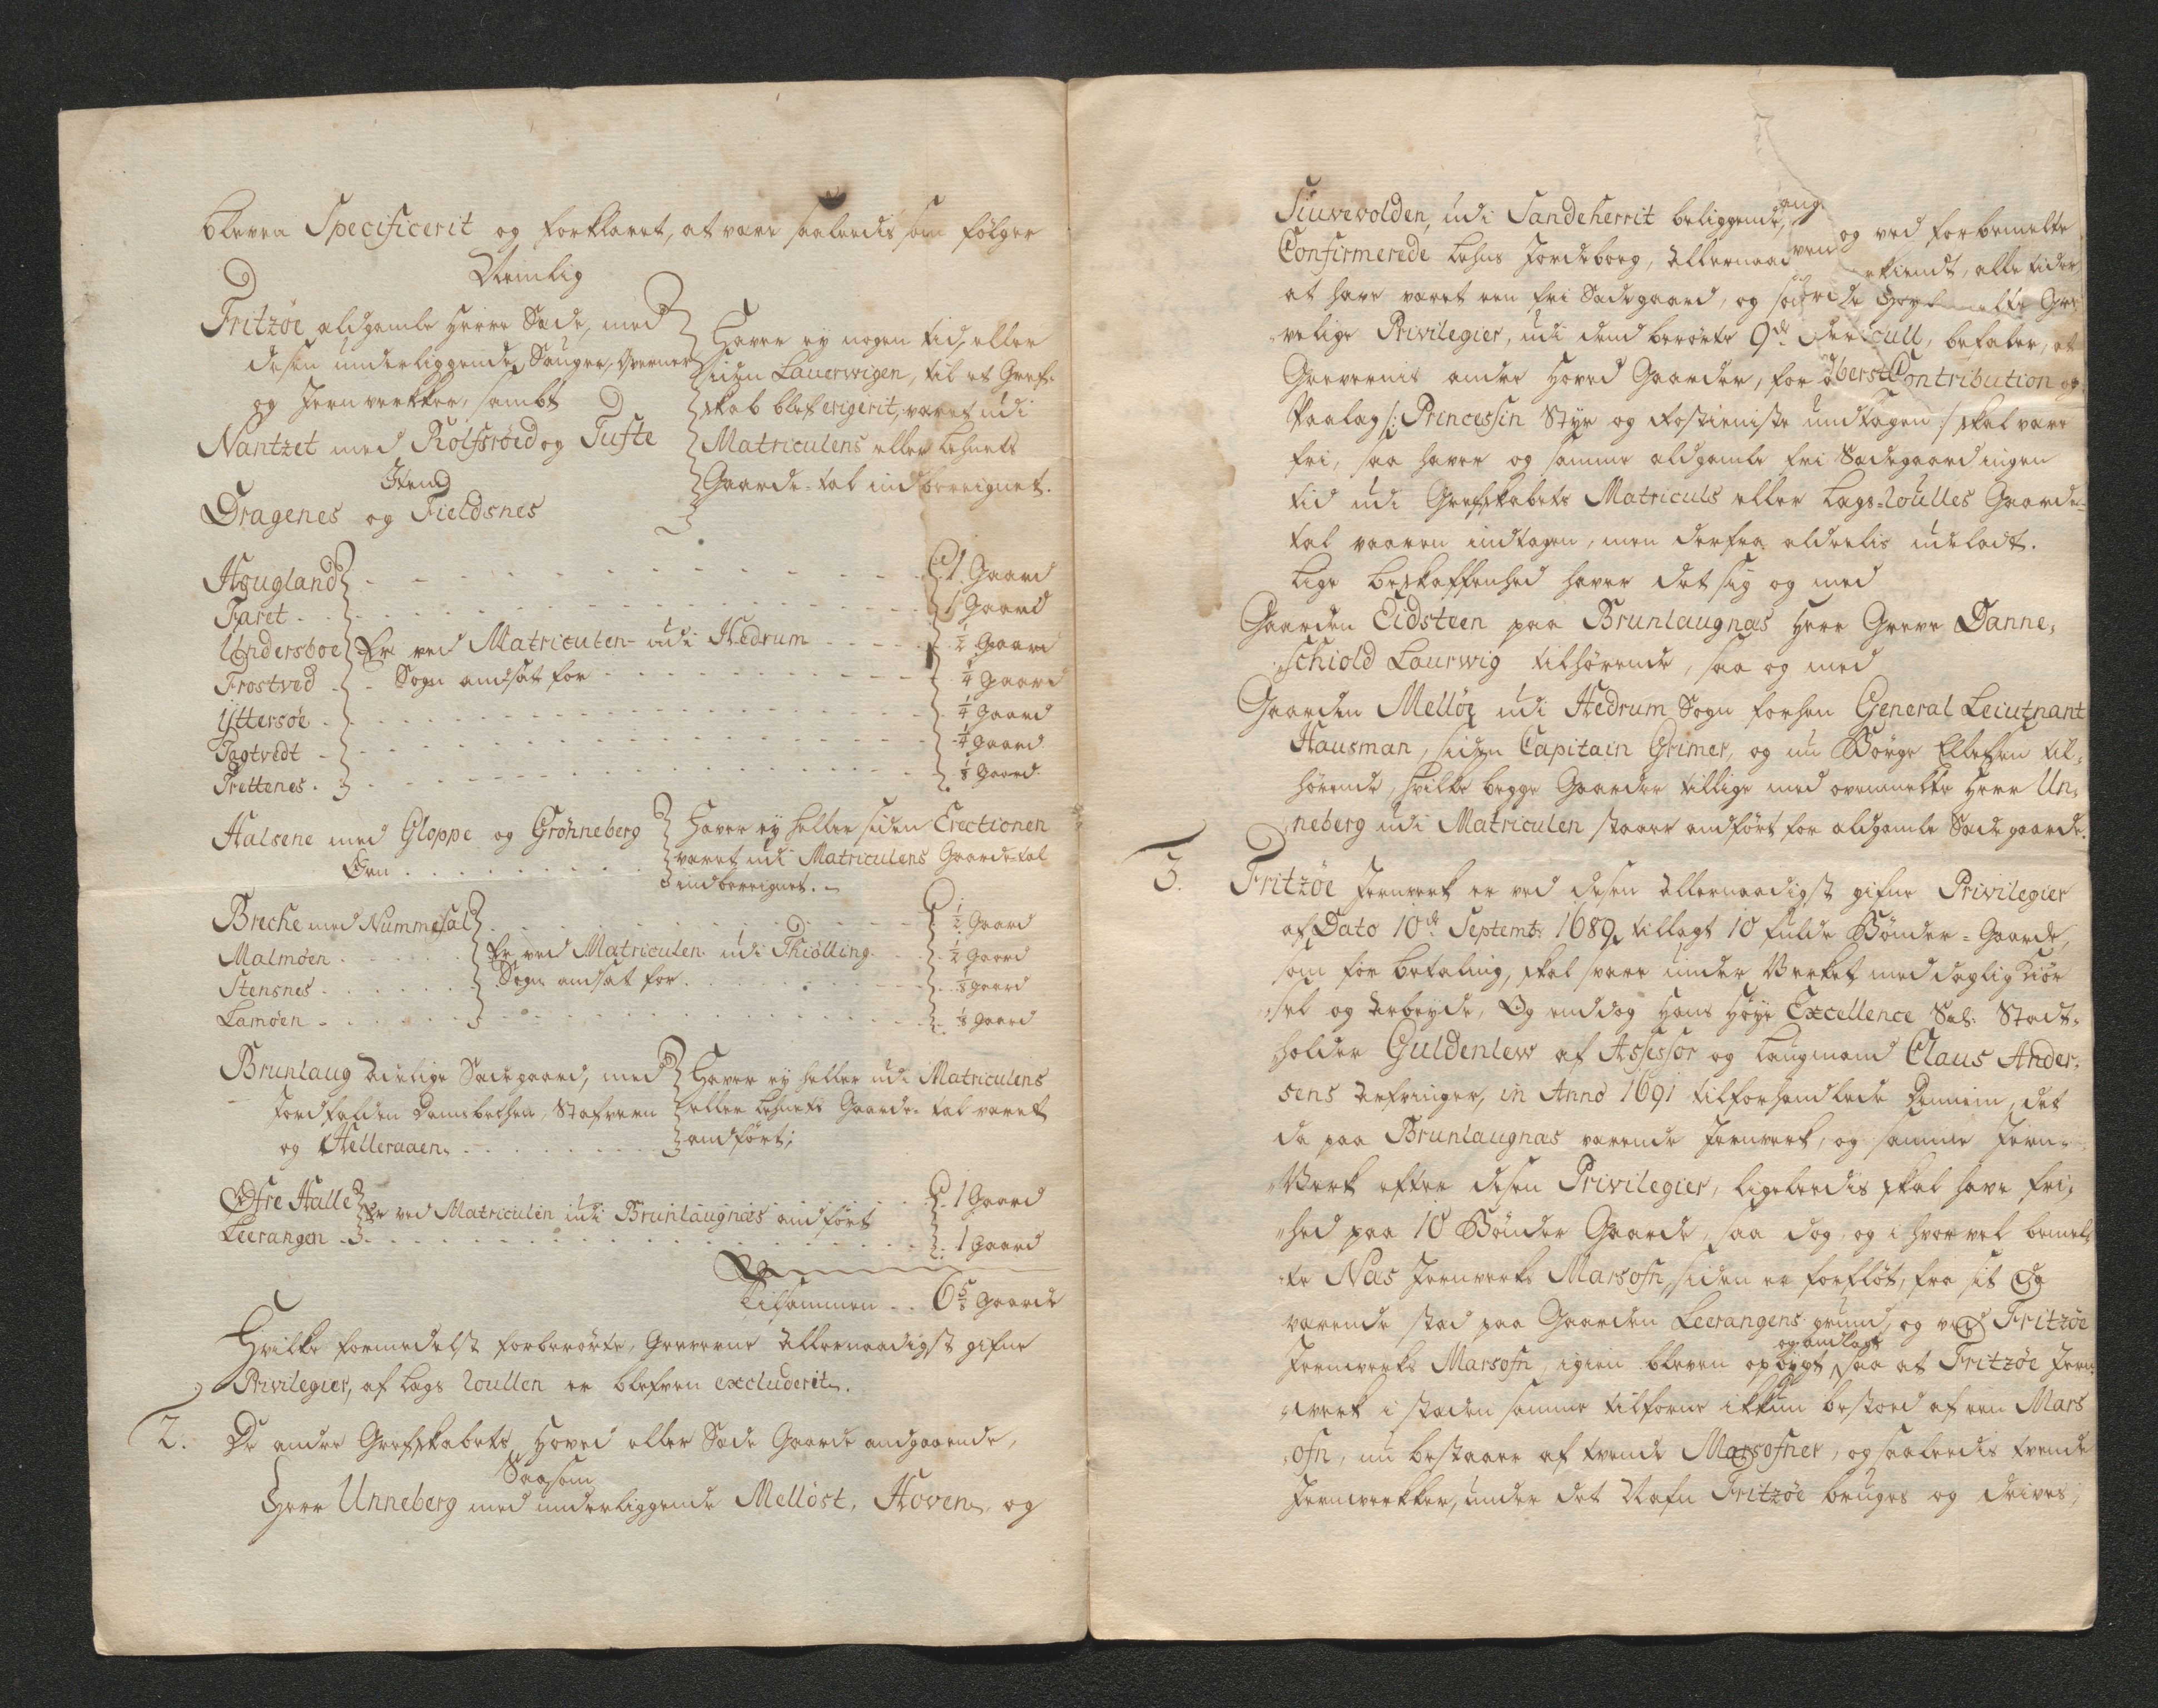 bleven Specificerit og forklaret, at vare saaleedis som følger
Nemlig
Fritzøe aldgamle Herre Sæde, med
desen underliggende Sauger, Qverner
og Jernverkker, sambt
Nantzet med Rolfsröed og Tufte
Item
Dragenes og Fieldsnes
Haver ey nogen tid, eller
siden Lauerwigen, til et Gref-
skab blef erigerit, været udi
Matriculens eller Lehnets
Gaarde-tal indbereignet.
Hougland - - - 1. Gaard
Faret - - - 1 Gaard
Undersboe Er ved Matriculen udi Hedrum - - - ½ Gaard
Frostved - - Sogn andsat for - - - ¼ Gaard
Yttersøe - - - ¼ Gaard
Jagtvedt - - - ¼ Gaard
Prettenes - - - ⅛ Gaard
Halsene med Gloppe og Gröhneberg
Øen
Haver ey heller siden Erectionen
været udi Matriculens Gaarde-tal
indbereignet.
Breche med Nummesal - - - ½ Gaard
Malmøen - - - Er ved Matriculen udi Thiölling - - ½ Gaard
Stensnes - - - Sogn andsat for - - - ⅛ Gaard
Lamøen - - - ⅛ Gaard
Brunlaug Adelige Sædegaard, med
Jordfalden Damsbechen, Stafveren
og Helleraaen
Haver ey heller udi Matriculens
eller Lehnets Gaarde-tal været
andført;
Øfre Halle Er ved Matriculen udi Brunlaugnæs andført - 1 Gaard
Leerangen - - - 1 Gaard
Tilsammen - - 6 5/8 Gaarde
Hvilke formedelst forberörte, Greverne Allernaadigst gifne
Privilegier, af Lags Roullen er blefven excluderit.
2. De andre Grefskabets Hoved eller Sæde Gaarde andgaaende,
Saasom
Herr Unneberg med underliggende Mellöst, Hoven, og
Siuvevolden, udi Sandeherrit beliggende, og ved forbemelte
Confirmerede Lehns Jordeboeg, Allernaad ekiendt, alle tider,
at have været een fri Sædegaard, og som de Høybemelte Gre-
velige Privilegier, udi dend berörte 9de Articull, befaler, at
Grevernis andre Hoved Gaarder, for Contribution og
Paalag /: Princessin Styr og Rostieniste undtagen :/ skal være
fri, saa haver og samme aldgamle fri Sædegaard ingen
tid udi Grefskabets Matriculs eller Lags-Roulles Gaarde-
tal vaaren indtagen, men derfra alderlis udeladt.
Lige beskaffenhed haver det sig og med
Gaarden Eidsteen paa Brunlaugnæs Herr Greve Danne-
schiold Laurwig tilhørende, saa og med
Gaarden Melløe udi Hedrum Sogn forhen General Leiutnant
Hausman, siden Capitain Grimer, og nu Börge Ellefsen til-
hörende, hvilke begge Gaarder tillige med ovenmelte Herr Un-
neberg udi Matriculen staaer andfört for aldgamle Sædegaarde.
3. Fritzøe Jernverk er ved desen Allernaadigst gifne Privilegier
af Dato 10de Septembr: 1689 tillagt 10 fulde Bönder-Gaarde,
som for betaling, skal være under Verket med daglig Kiör-
sel og Arbeyde, Og enddog Hans Høye Excellence Sal: Stadt-
holder Guldenlew af Assessor og Laugmand Claus Ander-
sens Arfvinger, in Anno 1691 tilforhandlede Dennem, det
da paa Brunlaugnæs værende Jernverk, og samme Jern-
Verk efter desen Privilegier, ligeleedis skal have fri-
hed paa 10 Bönder Gaarde, saa dog, og i hvorvel bemel-
te Næs Jernverks Marsofn, siden er forfløt, fra sit da
værende stad paa Gaarden Leerangens grund, og ved Fritzøe
Jernverks Marsofn, igien bleven opbygt og andlagt, saa at Fritzøe Jern-
verk i staden samme tilforne ikkun bestoed af een Mars-
ofn, nu bestaaer af tvende Marsofner, og saaleedis tvende
Jernverkker, under det Nafn Fritzøe bruges og drives;